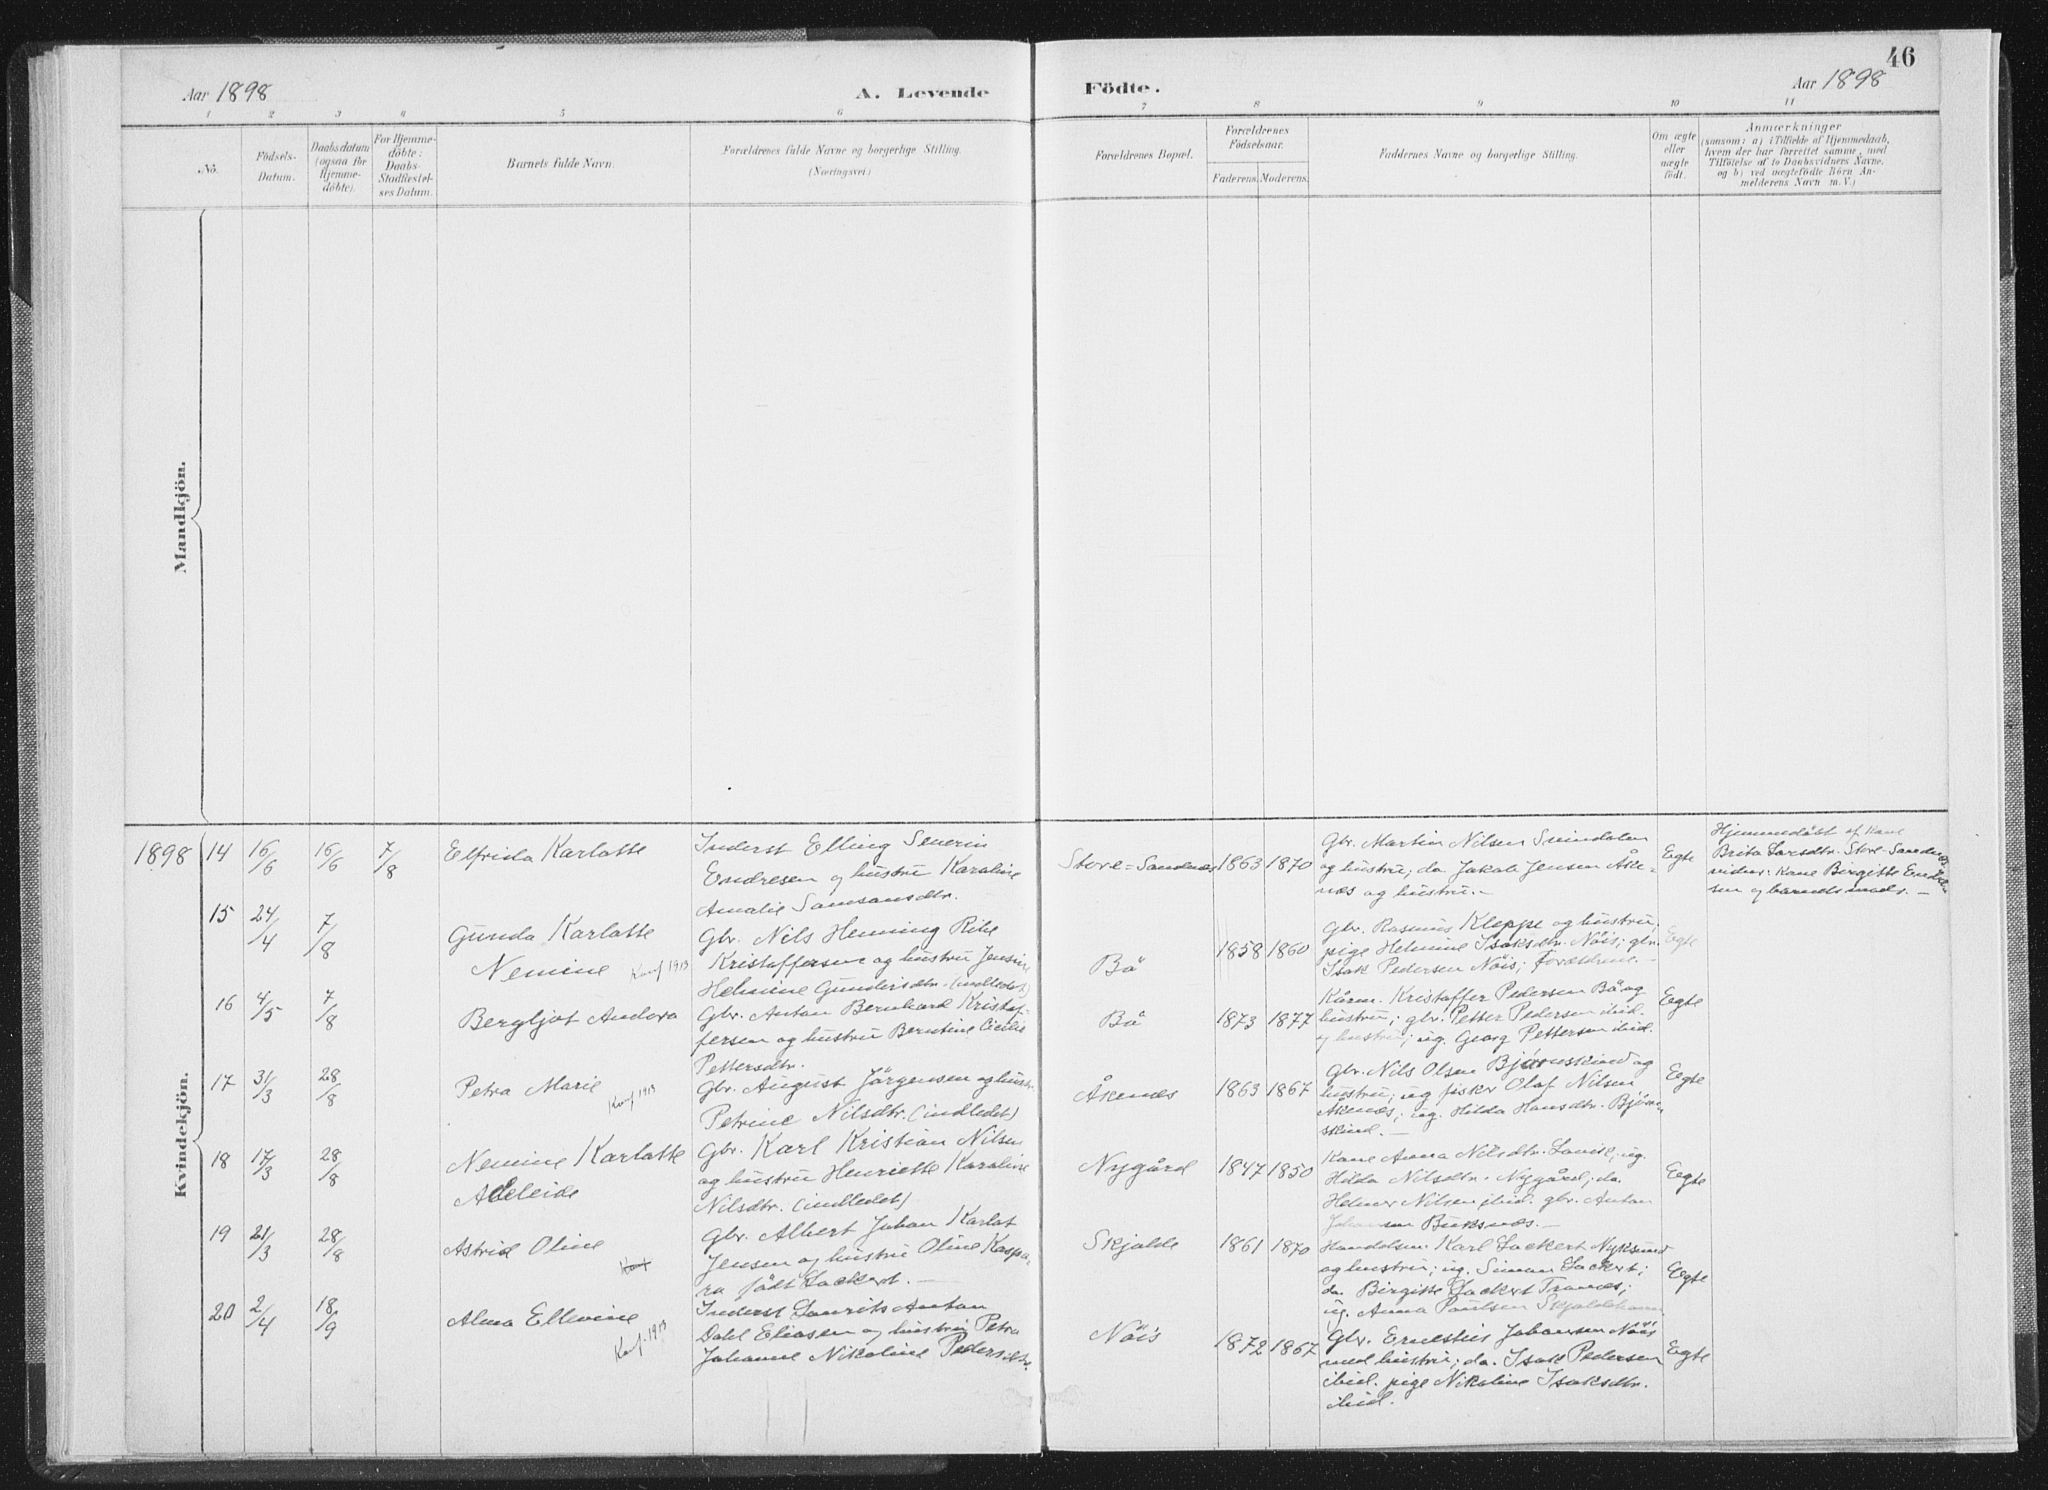 46
Aar 1898
A. Levende
Födte.
Aar 1898
1 2 3 4 5 6 7 8 9 10 11
No.
Födsels-
Datum.
Daabsdatum
(ogsaa for
Hjemme-
döbte).
For Hjemme-
döbte:
Daabs-
Stadfæstel-
ses Datum.
Barnets fulde Navn.
Forældrenes fulde Navne og borgerlige Stilling.
(Næringsvei.)
Forældrenes Bopæl.
Forældrenes
Födselsaar.
Faderens.
Moderens.
Faddernes Navne og borgerlige Stilling.
Om ægte
eller
uægte
födt.
Anmærkninger
(saasom: a) i Tilfælde af Hjemmedaab,
hvem der har forrettet samme, med
Tilföielse af to Daabsvidners Navne,
og b) ved uægtefödte Börn An-
melderens Navn m. V.)
Mandkjön.
Kvindekjön.
1898
14
16/6
16/6
7/8
Elfrida Karlotte
Inderst Elling Severin
Endresen og hustru Karoline
Amalie Samsonsdtr.
Store=Sandnes
1863
1870
Gbr. Martin Nilsen Svindalen
og hustru; do Jakob Jensen Åke-
næs og hustru.-
Egte
Hjemmedöbt af kone
Brita Larsdtr. Store-Sandnes
vidner: Kone Birgitte Endre-
sen og barnets mods. -
15
24/4
7/8
Gunda Karlotte
Nemine
Konf 1913
Gbr. Nils Henning Ribe
Kristoffersen og hustru Jensine
Helmine Gundersdtr. (indledet)
Bö
1858
1860
Gbr. Rasmus Kleppe og hustru,
pige Helmine Isaksdtr. Nöis; gbr.
Isak Pedersen Nöis; forældrene.-
Egte
16
4/5
7/8
Bergljot Andora
Gbr. Anton Bernhard Kristof-
fersen og hustru Berntine Cicilie
Pettersdtr.
Bö
1873
1877
Kårm. Kristoffer Pedersen Bö og
hustru; gbr. Petter Pedersen ibid.
og hustru; ug. Georg Pettersen ibid.
Egte
17
31/3
28/8
Petra Marie
Konf 1913
Gbr. August Jörgensen og hustr.
Petrine Nilsdtr. (indledet)
Åkenæs
1863
1867
Gbr. Nils Olsen Bjørnskind og
hustru; ug fisker Olaf Nilsen
Åkenæs; ug. Hilda Hansdtr. Bjørn-
skind. -
Egte
18
17/3
28/8
Nemine Karlotte
Adeleide
Gbr. Karl Kristian Nilsen
og hustru Henriette Karoline
Nilsdtr. (indledet)
Nygård
1847
1850
Kone Anna Nilsdtr. ug.
Hilda Nilsdtr. Nygård; do.
Helmer Nilsen ibid. gbr. Anton
Johansen Buksnæs. -
Egte
19
21/3
28/8
Astrid Oline
Konf
Gbr. Albert Johan Karlot
Jensen og hustru Oline Kaspa-
ra födt Lockert. -
Skjolde
1861
1870
Handelsm. Karl Lockert Nyksund
og hustru; ug. Simon Lockert;
do. Birgitte Lockert Tranes;
ug. Anna Paulsen Skjoldehamn
Egte
20
2/4
18/9
Alma Ellevine
Konf. 1913
Inderst Laurits Anton
Dahl Eliasen og hustru Petra
Johanne Nikoline Pedersdtr.
Nöis
1872
1867
Gbr. Ernestus Johansen Nöis
med hustru; do. Isak Pedersen
ibid. pige Nikoline Isaksdtr.
ibid.
Egte